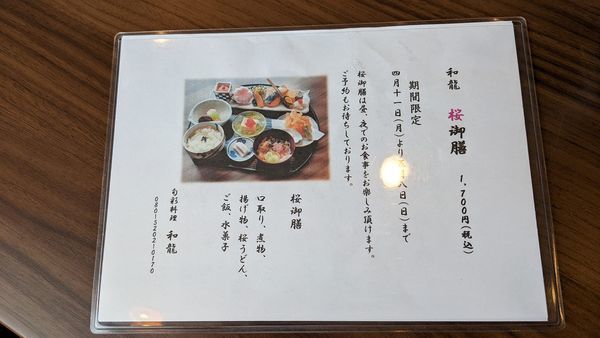 和龍 桜御膳 1,700円(税込)
期間限定
四月十一日(月)より 八日(日)まで
桜御膳は昼、夜でのお食事をお楽しみ頂けます。
ご予約もお待ちしております。
桜御膳
口取り、煮物、
揚げ物、桜うどん、
ご飯、水菓子
旬彩料理 和龍
080ー5202ー0170